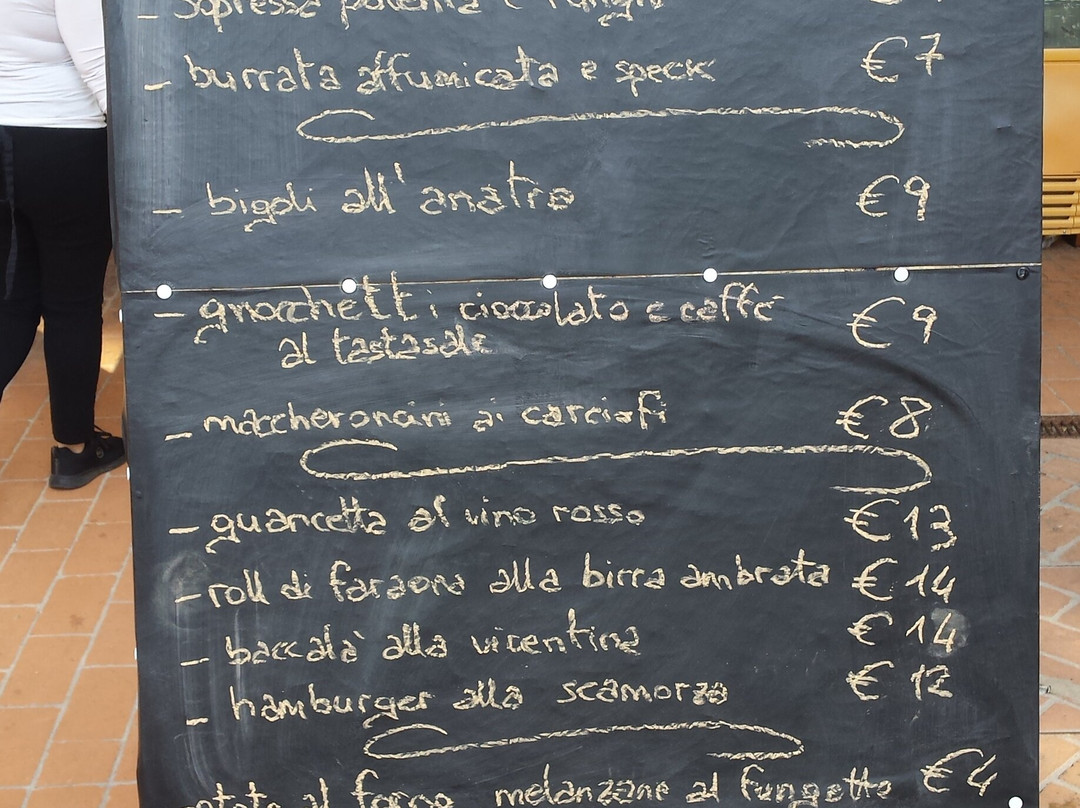 - sopressa polenta e funghi
- burrata affumicata e speck €7
- bigoli all'anatra €9
- gnocchetti cioccolato e caffè €9
al tastasale
- maccheroncini ai carciofi €8
- guancetta al vino rosso €13
- roll di faraona alla birra ambrata €14
- baccalà alla vicentina €14
- hamburger alla scamorza €12
patate al forno melanzane al funghetto €4